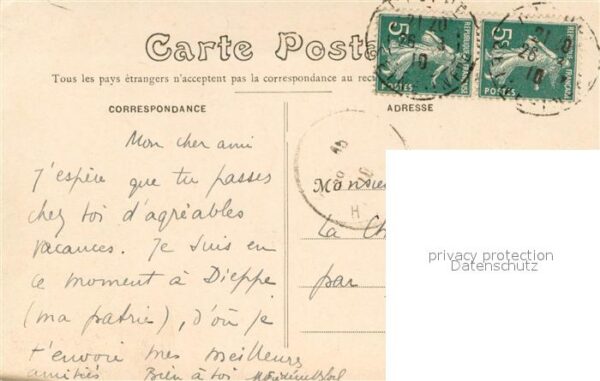 Carte Posta
Tous les pays étrangers n'acceptent pas la correspondance au rec
CORRESPONDANCE
ADRESSE
Mon cher ami
J'espère que tu passes
chez toi d'agréables
vacances. Je suis en
ce moment à Dieppe
(ma patrie), d'où je
t'envoie mes meilleures
amitiés Bien à toi
Monsieu
La Ch
par
privacy protection
Datenschutz
5c
RÉPUBLIQUE FRANÇAISE
POSTES
21 20
26 3
10
5c
RÉPUBLIQUE FRANÇAISE
POSTES
26
10